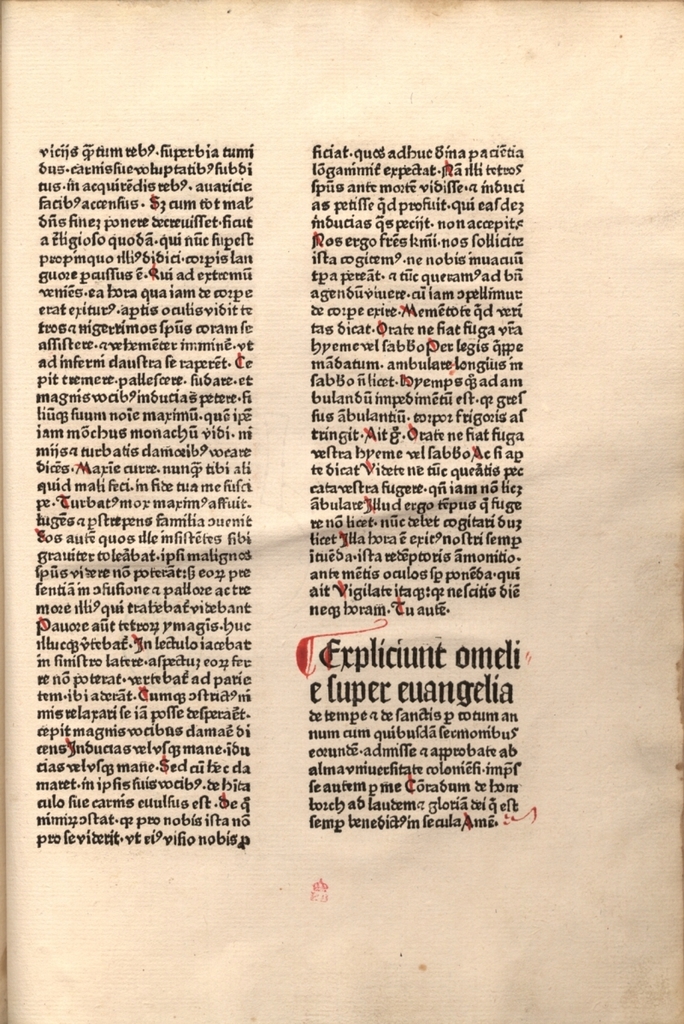 vicijs q̄ꝫtum rebꝰ. superbia tumi
dus. carnis sue voluptatibꝰ subdi
tus. in acquirēdis rebꝰ. auaricie
facibꝰ accensus. Sꝫ cum tot malꝰ
dn̄s finem ponere decreuisset. sicut
a rl̄igioso quodā. qui nūc supest
propinquo illiꝰ didici. corpis lan
guore ꝑcussus ē. Qui ad extremū
veniēs. ea hora qua iam de corpe
erat exiturꝰ. aꝑtis oculis vidit te
tros ⁊ nigerrimos spūs coram se
assistere. ⁊ vehementer imminē. vt
ad inferni claustra se raperēt. Ce
pit tremere. pallescere. sudare. et
magnis vocibꝰ inducias petere. fi
liūqꝫ suum noīe maximū. quē ip̄e
iam mōchus monachū vidi. ni
mijs ⁊ turbatis clamoribꝰ vocare
dicēs. Maxīe curre. nunq̄ꝫ tibi ali
quid mali feci. in fide tua me susci
pe. Turbatꝰ mox maximꝰ affuit.
lugēs ⁊ ꝑstrepens familia ꝯuenit
Eos autē quos ille insistētes sibi
grauiter toleābat. ipsi malignos
spūs videre nō poterāt. sꝫ eorꝫ pre
sentiam in ꝯfusione ⁊ pallore ac tre
more illiꝰ qui trahebat᷑ videbant
Pauore aūt tetrorꝫ ymagīs. huc
illucqꝫ v̄tebat᷑. In lectulo iacebat
in sinistro latere. aspectum eorꝫ fer
re nō poterat. vertebat᷑ ad parie
tem. ibi aderāt. Cumqꝫ ꝯstrictꝰ ni
mis relaxari se iā posse desperass̄et.
cepit magnis vocibus clamaē di
cens Inducias vel vsqꝫ mane. īdu
cias vel vsqꝫ mane. Sed cū hec cla
maret. in ipsis suis vocibꝰ. de hīta
culo sue carnis euulsus est. De q̄
nimirꝫ ꝯstat. ꝙ pro nobis ista nō
pro se viderit. vt eiꝰ visio nobis ꝓ
ficiat. quos adhuc diīna paciētia
lōganimiᷤ expectat. Nā illi tetros
spūs ante mortē vidisse. ⁊ induci
as petisse qͥd profuit. qui easdem
inducias q̄s pecijt. non accepit.
Nos ergo fr̄es kr̄mi. nos sollicite
ista cogitemꝰ. ne nobis in vacuū
tꝑa pereāt. ⁊ tūc queramꝰ ad bn̄
agendū viuere. cū iam ꝯpellimur
de corpe exire. Mementote qͥd veri
tas dicat. Orate ne fiat fuga vr̄a
hyeme vel sabb̄o Per legis q̄ppe
mandatum. ambulare longius in
sabb̄o n̄ licet. Hyemps qꝫ ad am
bulandū impedimētū est. qꝛ gres
sus ābulantiū. torpor frigoris as
tringit. Ait gͦ. Orate ne fiat fuga
vestra hyeme vel sabb̄o Ac si aꝑ
te dicat Videte ne tūc queātis pec
cata vestra fugere. qn̄ iam nō licꝫ
ābulare Illud ergo tēpus qͦ fuge
re nō licet. nūc debet cogitari dum
licet Illa hora ē exitꝰ nostri semꝑ
ītuēda. ista redēptoris āmonitio.
ante mētis oculos sꝑ ponēda. qui
ait Vigilate itaqꝫ. qꝛ nescitis diē
neqꝫ horam. Tu autē.
Expliciunt omeli
e super euangelia
de tempe ⁊ de sanctis ꝑ totum an
num cum quibusdā sermonibus
eorundē. admisse ⁊ approbate ab
alma vniuersitate coloniēsi. imp̄s
se autem ꝑ me Cōradum de hom
borch ad laudem ⁊ gloriā dei qͥ est
semꝑ benedictꝰ in secula Amē.